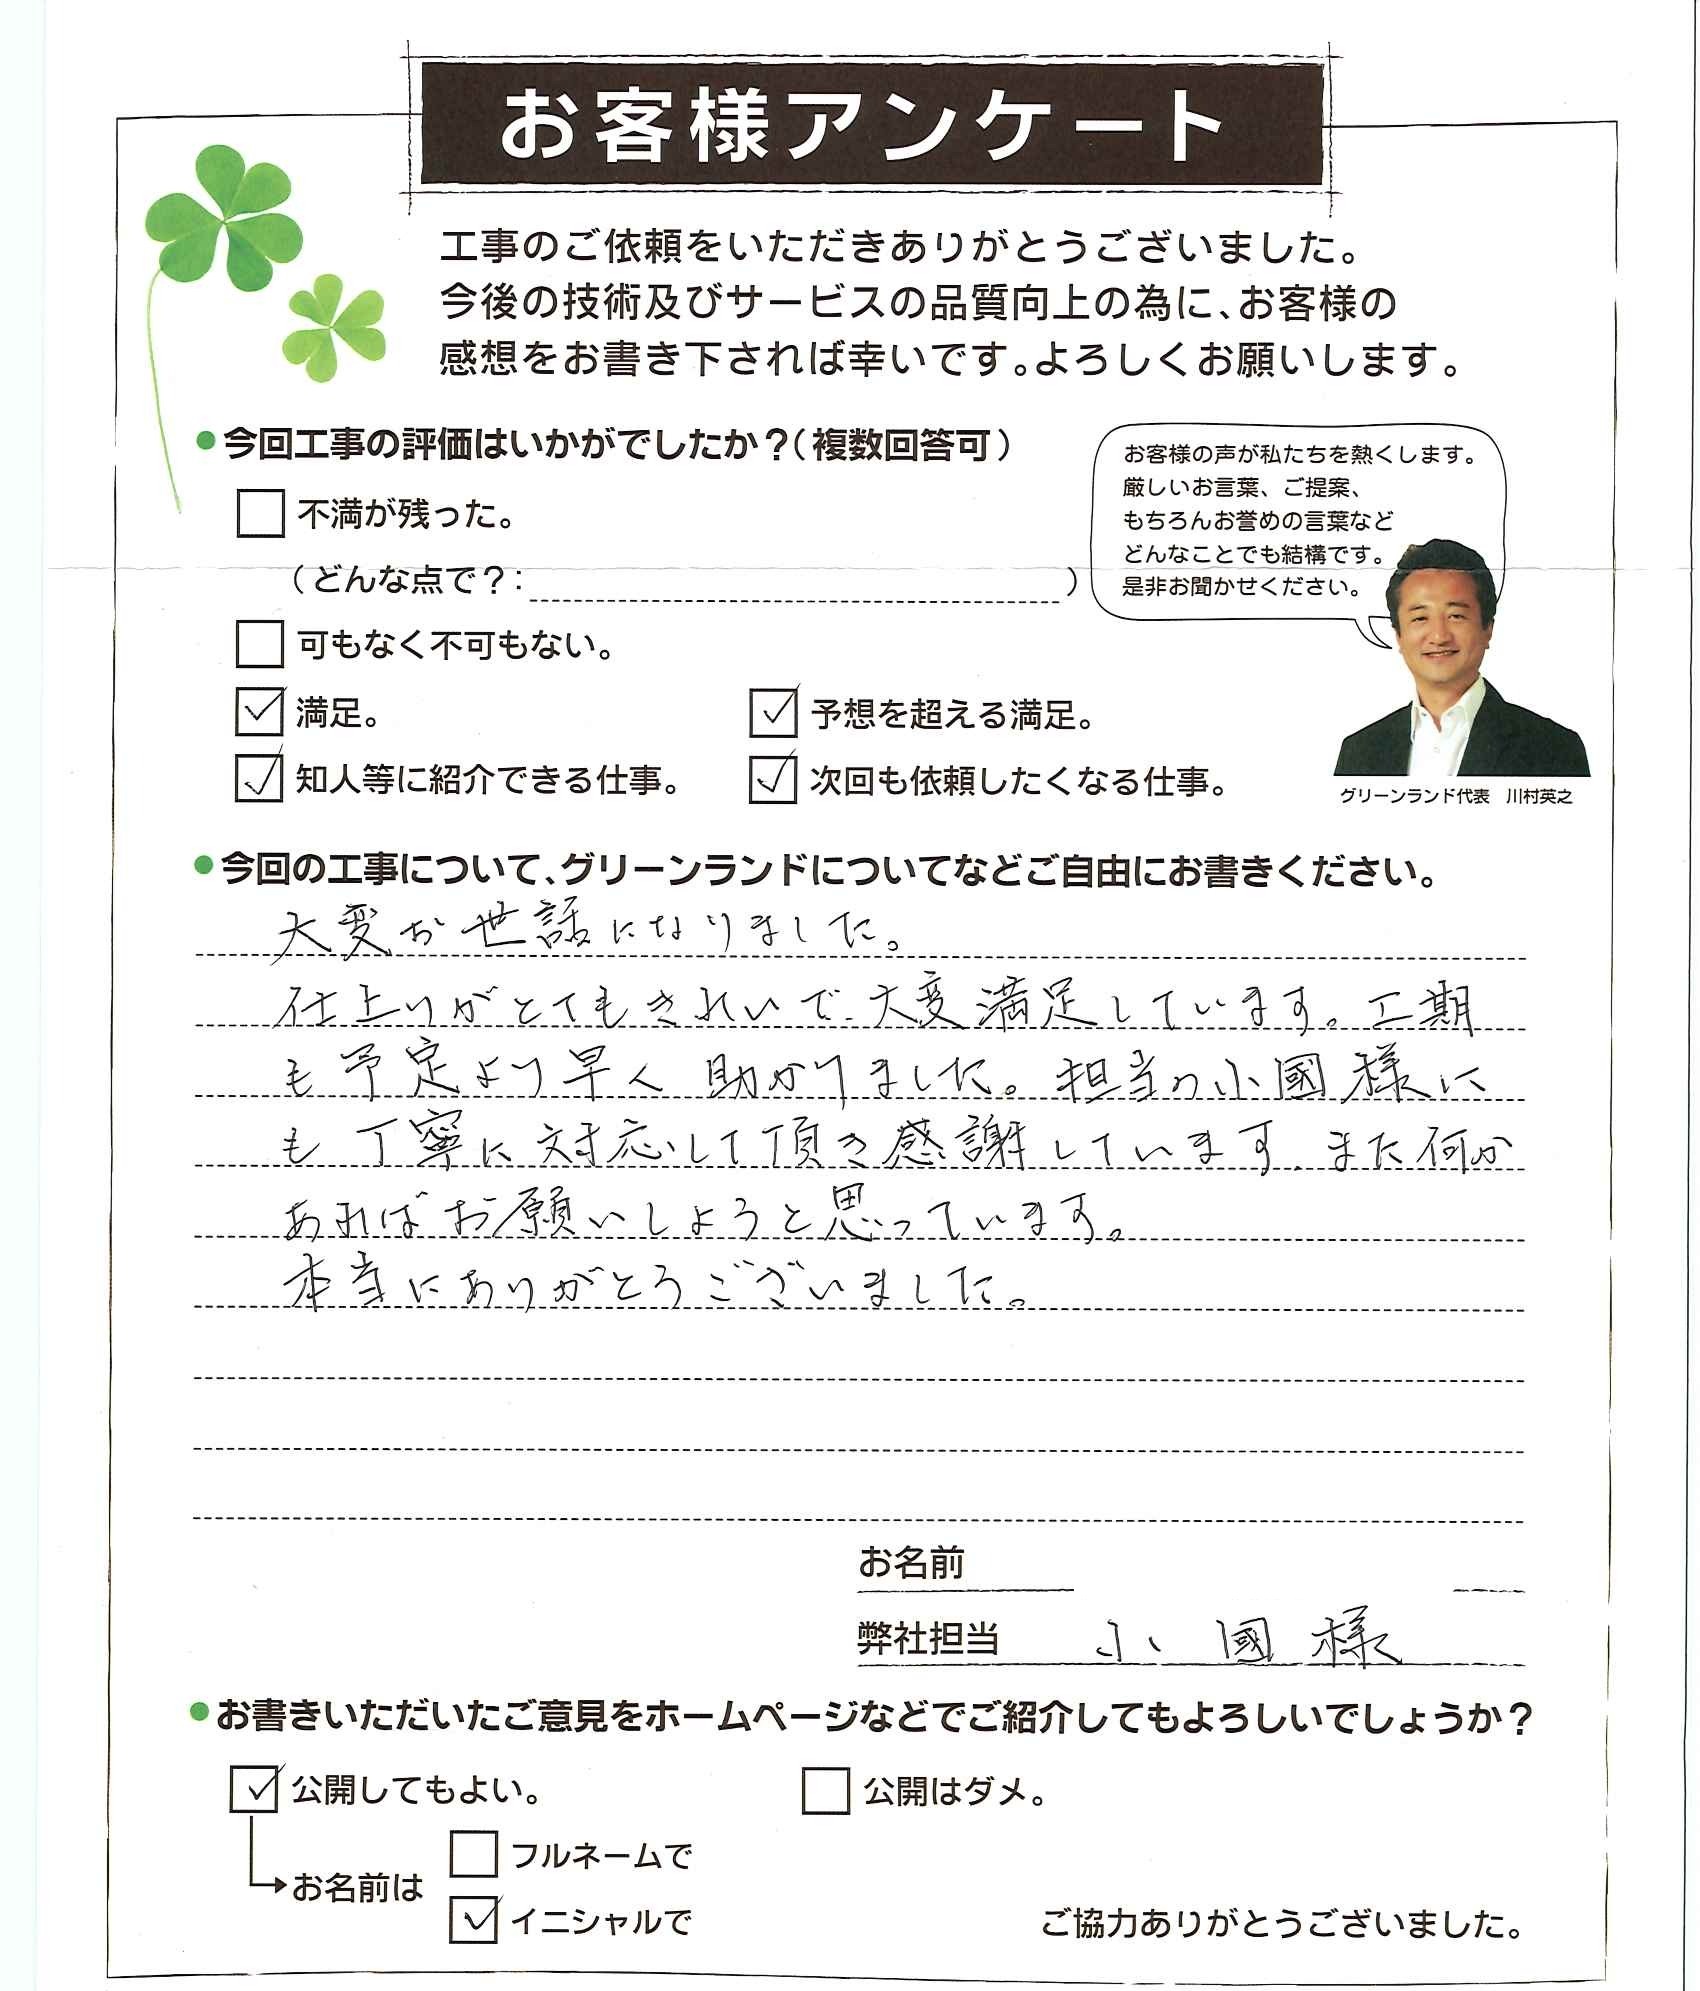 お客様アンケート
工事のご依頼をいただきありがとうございました。
今後の技術及びサービスの品質向上の為に、お客様の
感想をお書き下されば幸いです。よろしくお願いします。
●今回工事の評価はいかがでしたか？（複数回答可）
お客様の声が私たちを熱くします。
厳しいお言葉、ご提案、
もちろんお誉めの言葉など
どんなことでも結構です。
是非お聞かせください。
グリーンランド代表　川村英之
不満が残った。
（どんな点で？：　　　）
可もなく不可もない。
満足。
予想を超える満足。
知人等に紹介できる仕事。
次回も依頼したくなる仕事。
●今回の工事について、グリーンランドについてなどご自由にお書きください。
大変お世話になりました。
仕上りがとてもきれいで、大変満足しています。工期
も予定より早く助かりました。担当の小國様に
も丁寧に対応して頂き感謝しています。また何か
あればお願いしようと思っています。
本当にありがとうございました。
お名前
弊社担当　小國様
●お書きいただいたご意見をホームページなどでご紹介してもよろしいでしょうか？
公開してもよい。
公開はダメ。
お名前は
フルネームで
イニシャルで
ご協力ありがとうございました。